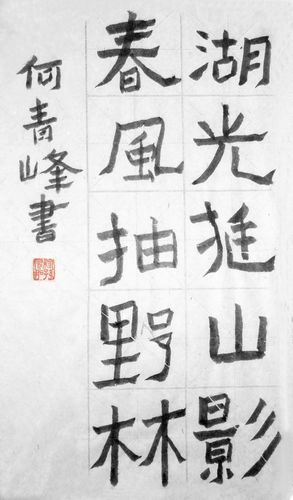 湖光推山影
春風抽野林
何青峰書